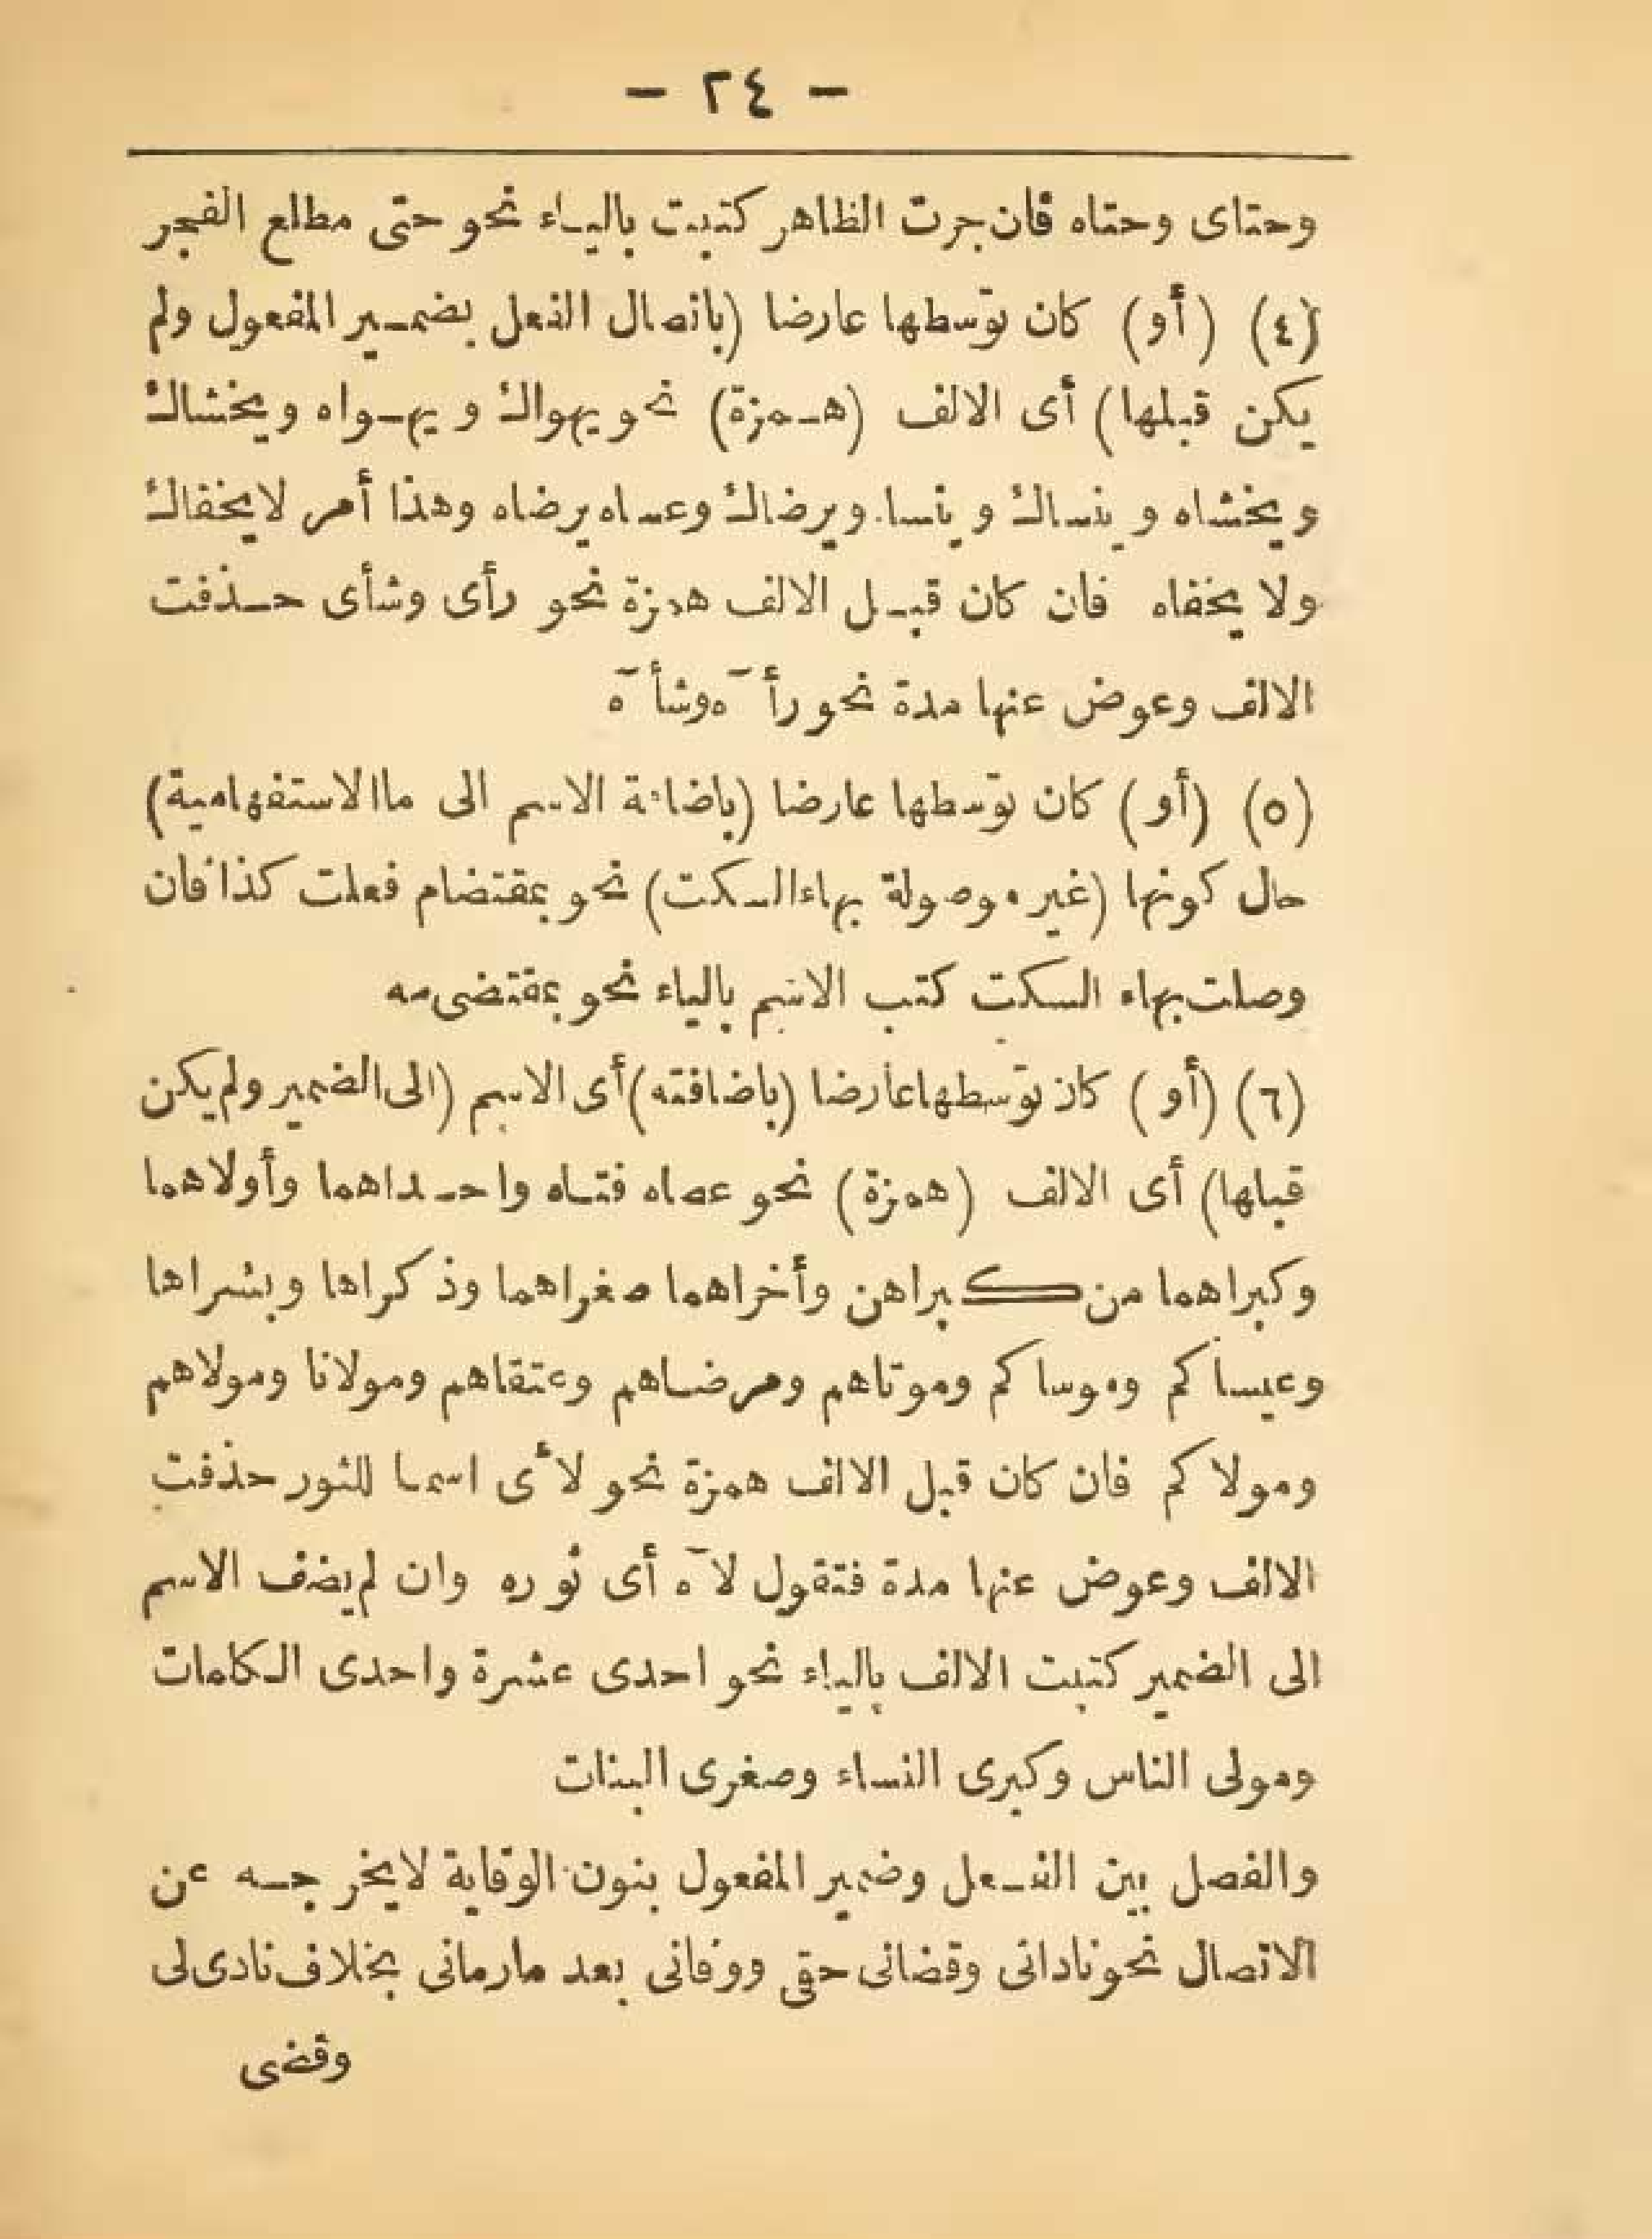 - ٢٤ -
وحتاى وحتاه فان جرت الظاهر كتبت بالياء نحو حتى مطلع الفجر
(٤) (أو) كان توّسطها عارضا (باتصال الفعل بضمير المفعول ولم
يكن قبلها) أى الالف (همزة) نحو يهواك ويهواه ويخشاك
ويخشاه وينساك وينساه ويرضاك وعساه يرضاه وهذا أمر لايخفاك
ولا يخفاه فان كان قبل الالف همزة نحو رأى وشأى حذفت
الالف وعوض عنها مدة نحو رأ~ه وشأ~ه
(٥) (أو) كان توّسطها عارضا (باضافة الاسم الى ماالاستفهامية)
حال كونها (غير موصولة بهاءالسكت) نحو بمقتضام فعلت كذا فان
وصلت بهاء السكت كتب الاسم بالياء نحو بمقتضى مه
(٦) (أو) كان توّسطها عارضا (باضافته) أى الاسم (الى الضمير ولم يكن
قبلها) أى الالف (همزة) نحو عصاه فتاه واحداهما وأولاهما
وكبراهما من كبراهن وأخراهما صغراهما وذكراها وبشراها
وعيساكم وموساكم وموتاهم ومرضاهم وعتقاهم ومولانا ومولاهم
ومولاكم فان كان قبل الالف همزة نحو لأى اسما للثور حذفت
الالف وعوض عنها مدة فتقول لآه أى ثوره وان لم يضف الاسم
الى الضمير كتبت الالف بالياء نحو احدى عشرة واحدى الكلمات
ومولى الناس وكبرى النساء وصغرى البنات
والفصل بين الفعل وضمير المفعول بنون الوقاية لايخرجه عن
الاتصال نحو نادانى وقضانى حقى ووفانى بعد مارمانى بخلاف نادى لى
وقضى